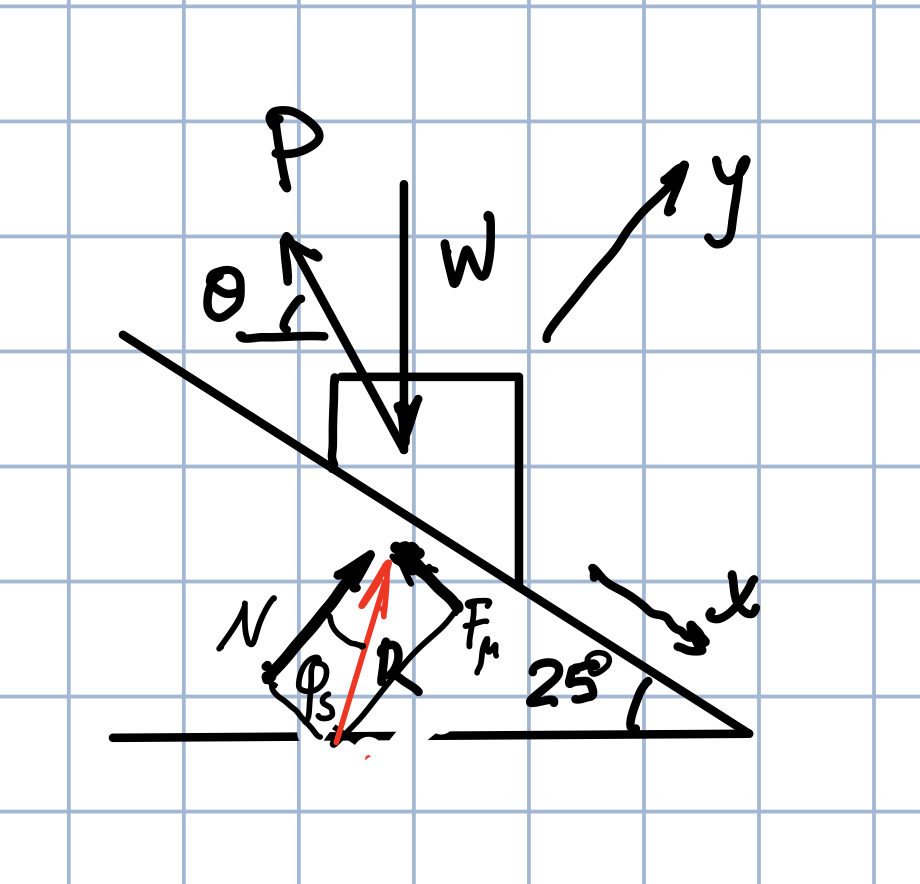 P
W
y
θ
x
N
φs
R
Fμ
25°